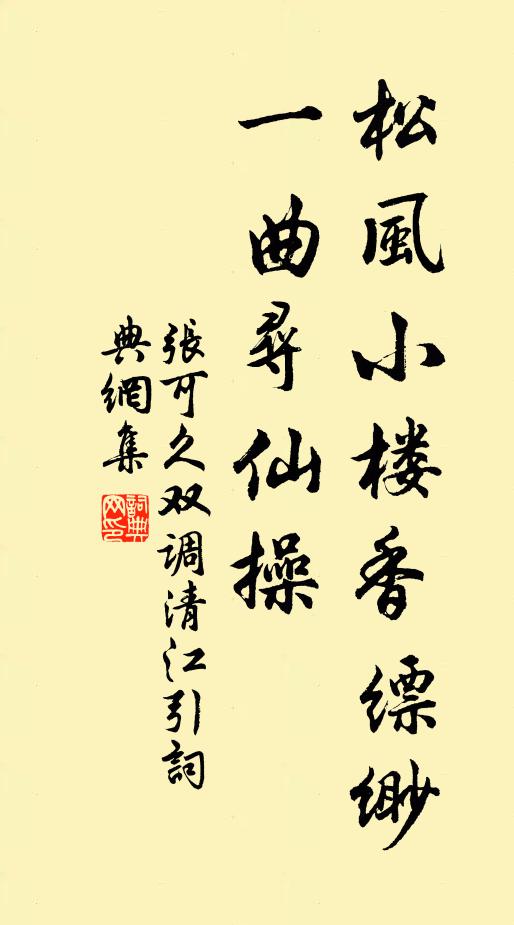 松風小楼香縹緲
一曲尋仙操
張可久双调清江引詞
典網集
詞典
网印